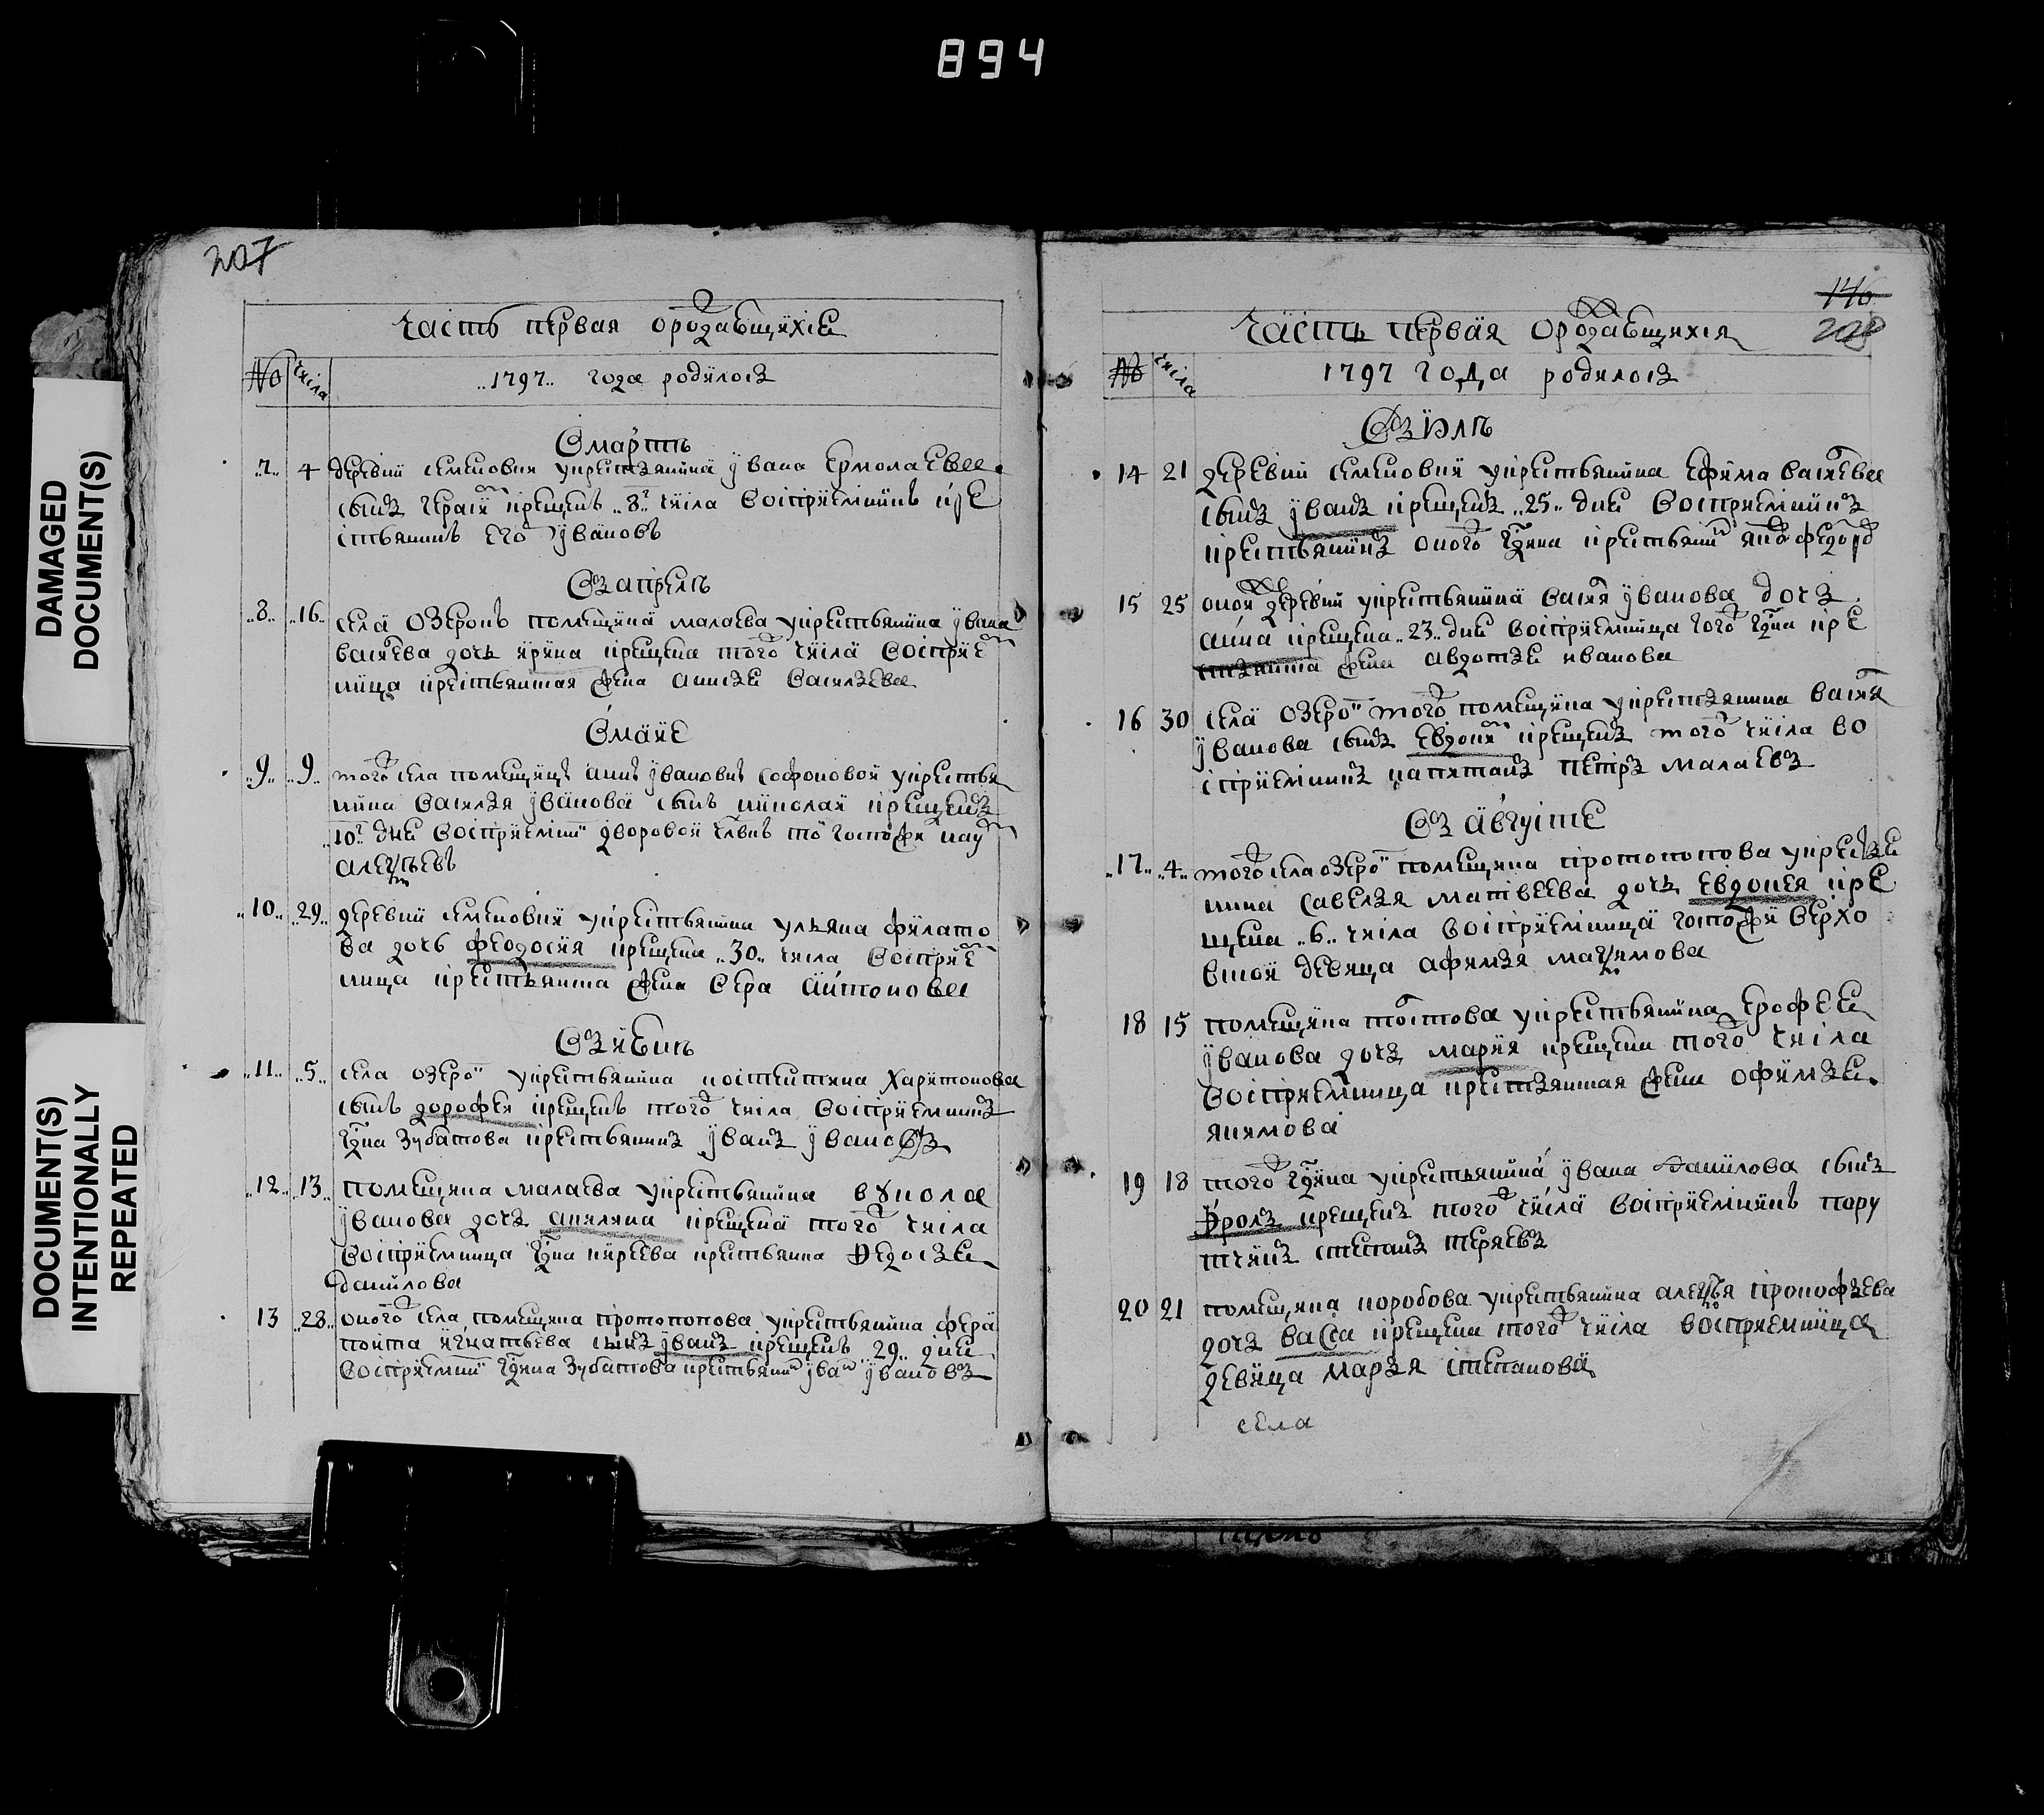 894
DAMAGED
DOCUMENT(S)
DOCUMENT(S)
INTENTIONALLY
REPEATED
207
часть первая ородавщихся
№ числа
..1797.. года родилось
Вмартъ
..7.. 4 деревни семеновки укрестьянина ивана ермолаева
сынъ герасим крещенъ ..8г числа воспрiемникъ кре
стьянинъ его ивановъ
Въ апрель
..8.. ..16.. села озерокъ помещика малаева укрестьянина ивана
василева дочь ирина крещена того числа воспрiем
ница крестьянская жена анисья васильева
В маие
..9.. ..9.. того села помещицы анны ивановны софоновой укрестья
нина василья иванова сынъ николаи крещенъ
..10г дня воспрiемни дворовой члвкъ той госпожи наум
алексеевъ
..10.. ..29.. деревни семеновки укрестьянина ульяна филато
ва дочь феодосия крещена ..30.. числа воспрiем
ница крестьянина жена вера антонова
Въ июнь
..11.. ..5.. села озеро укрестьянина костентина харитонова
сынъ дорофеи крещенъ того числа воспрiемникъ
гдна зубатова крестьянинъ иванъ ивановъ
..12.. ..13.. помещика малаева укрестьянина вукола
иванова дочь акилина крещена того числа
воспрiемница гдна киреева крестьянина Федосья
данилова
13 ..28.. оного села помещика протопопова укрестьянина фера
понта игнатьева сынъ иванъ крещенъ 29.. дня
воспрiемни гдина зубатова крестьянин иван ивановъ
146
208
часть первая ородавщихся
№ числа
1797 года родилось
Въ Июль
14 21 деревни семеновки укрестьянина ефима василева
сынъ иванъ крещенъ ..25.. дня воспрiемникъ
крестьянинъ оного гдина крестьянин яков федоров
15 25 оной деревни укрестьянина василя иванова дочь
анна крещена ..23.. дня воспрiемница того гдна кре
стьянина жена авдотья иванова
16 30 села озеро того помещика укрестьянина василя
иванова сынъ евдоким крещенъ того числа во
спрiемникъ капитанъ петръ малаевъ
Въ августе
..17.. ..4.. того села озеро помещика протопопова укрестья
нина савелья матвеева дочь евдокея кре
щена ..6.. числа воспрiемница госпожи верхо
вской девица афимья максимова
18 15 помещика толстова укрестьянина ерофея
иванова дочь мария крещена того числа
воспрiемница крестьянская жена офимья
якимова
19 18 того гдина укрестьянина ивана данилова сынъ
Фролъ крещенъ того числа воспрiемникъ пору
тчикъ степанъ теряевъ
20 21 помещика коробова укрестьянина алексея прокофьева
дочь васса крещена того числа воспрiемница
девица марья степанова
села